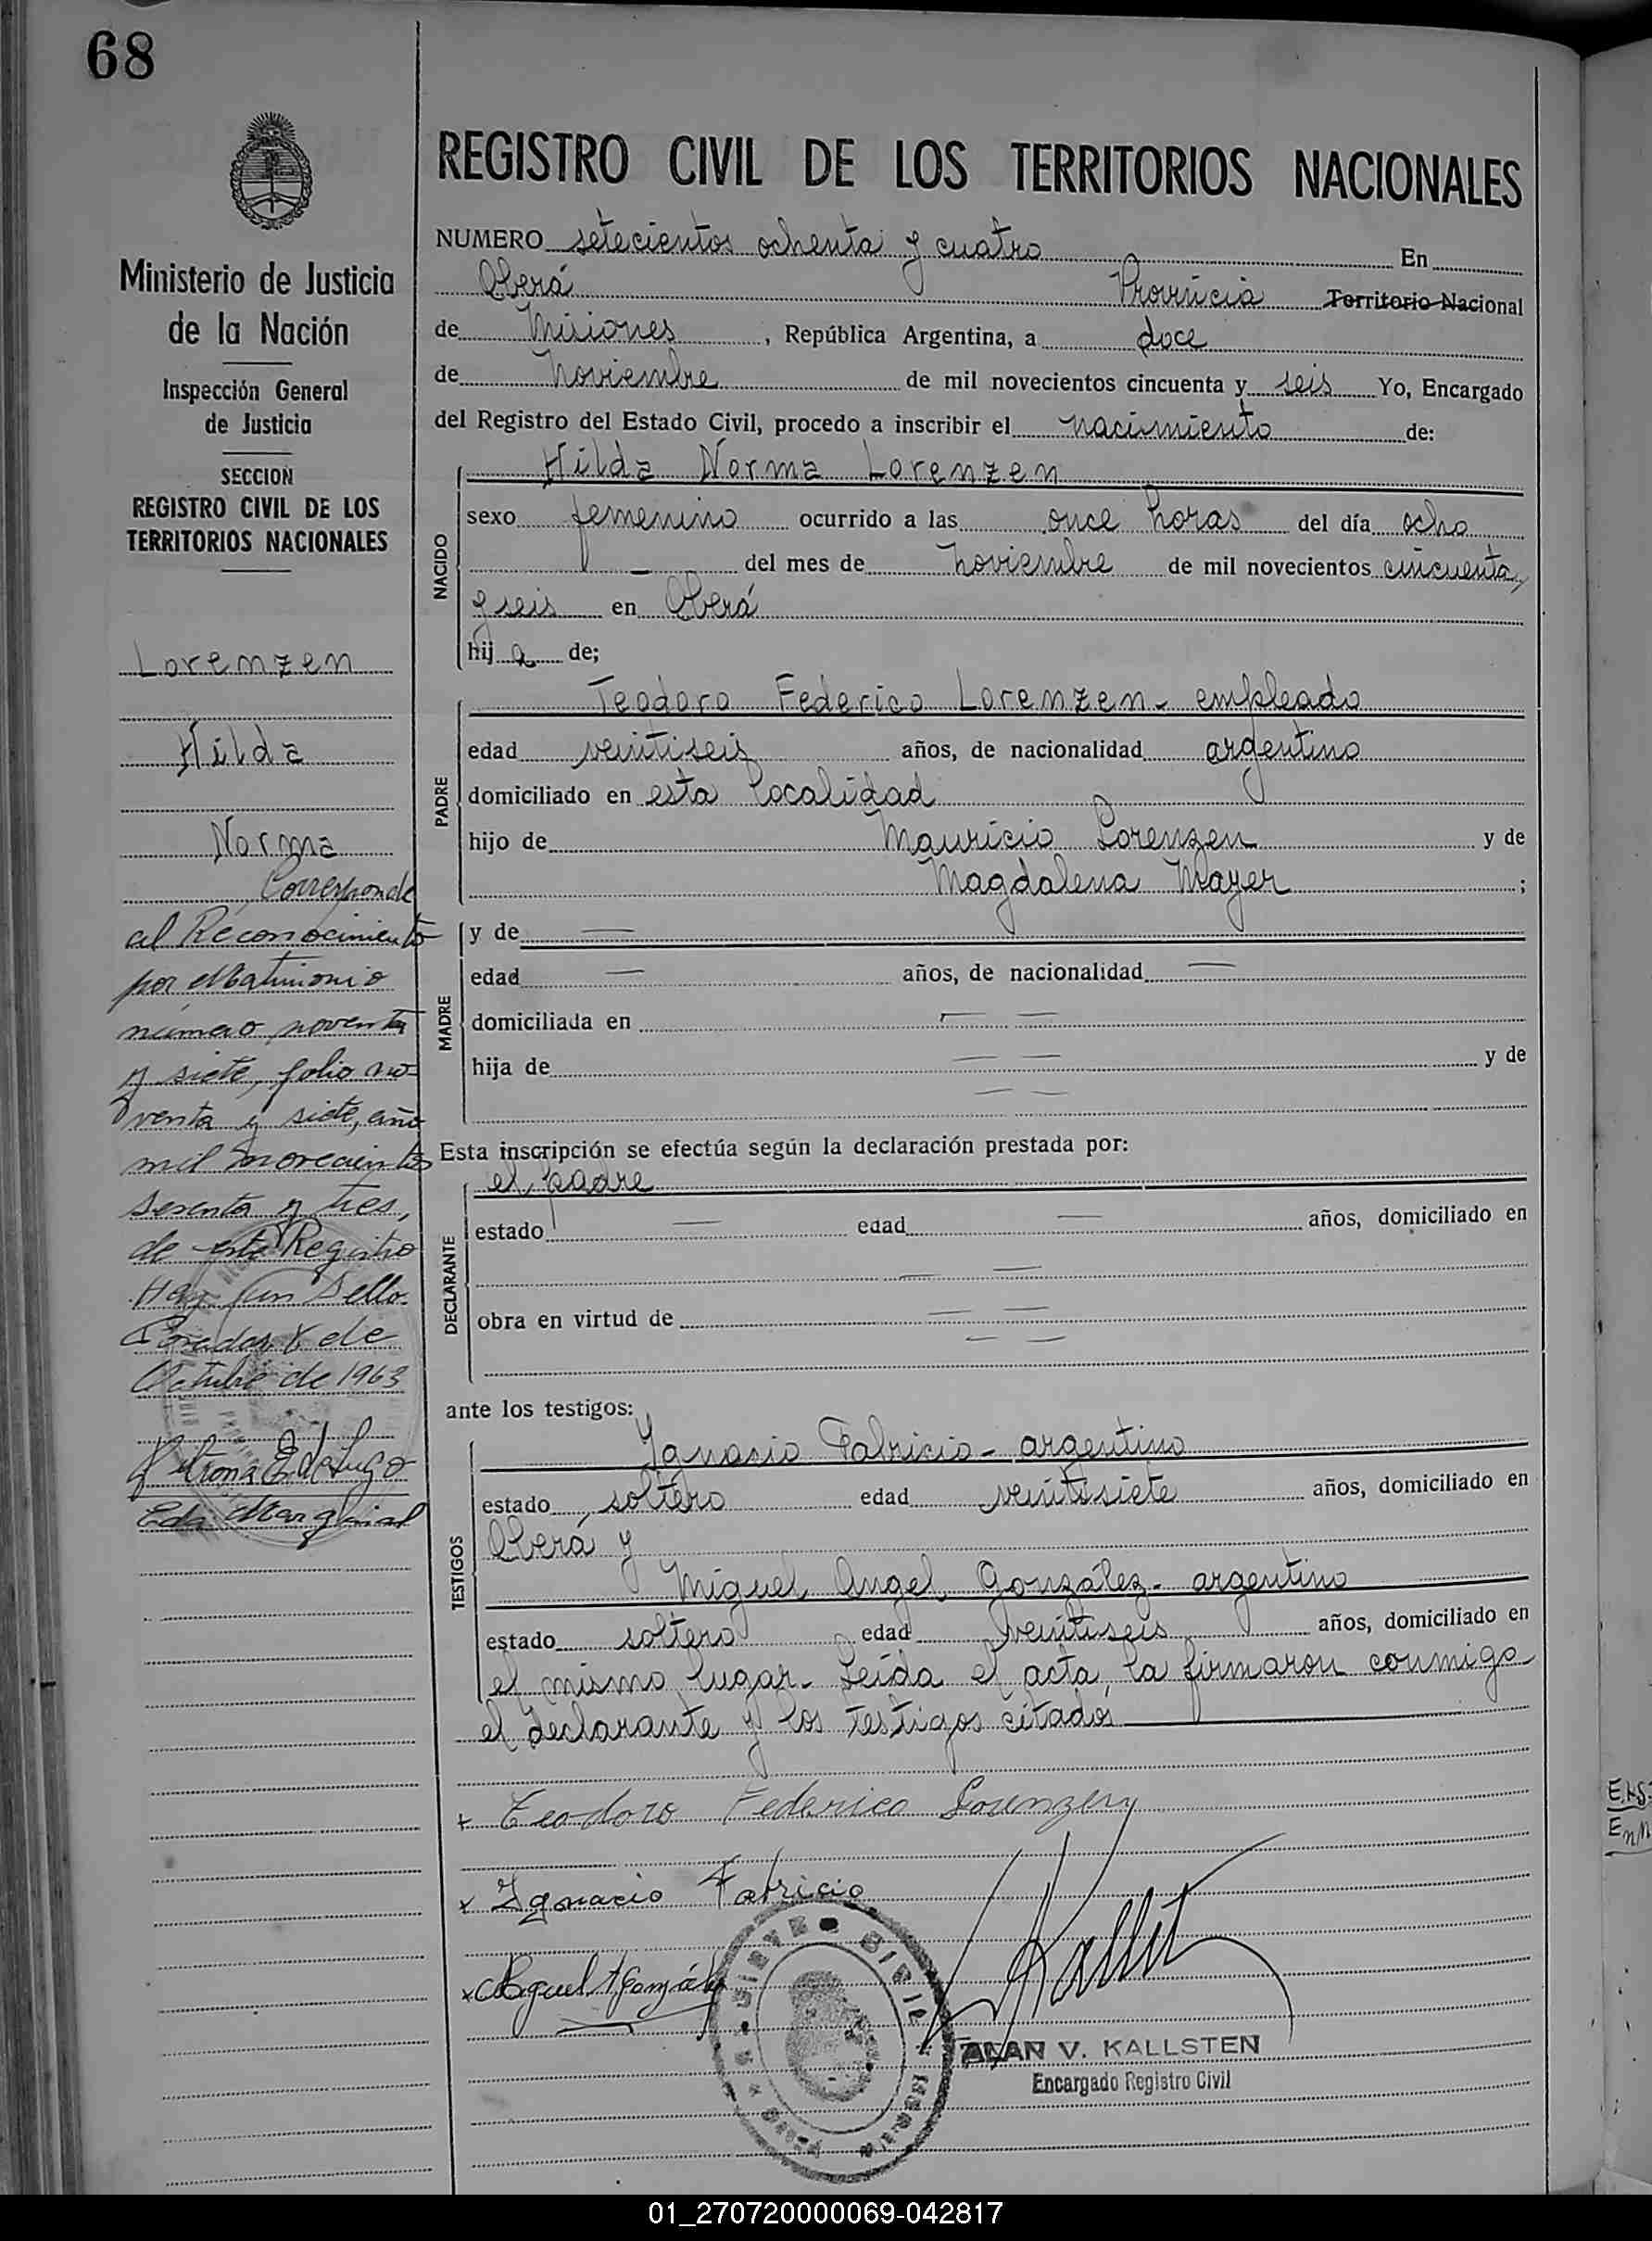 68
REGISTRO CIVIL DE LOS TERRITORIOS NACIONALES
Ministerio de Justicia
de la Nación
Inspección General
de Justicia
SECCION
REGISTRO CIVIL DE LOS
TERRITORIOS NACIONALES
Lorenzen
Hilda
Norma
Corresponde
al Reconocimiento
por Matrimonio
número noventa
y siete, folio no-
venta y siete, año
mil novecientos
sesenta y tres,
de este Registro
Hay un Sello.
Posadas, 8 de
Octubre de 1963
NUMERO setecientos ochenta y cuatro En
Oberá Provincia Territorio Nacional
de Misiones, República Argentina, a doce
de noviembre de mil novecientos cincuenta y seis Yo, Encargado
del Registro del Estado Civil, procedo a inscribir el nacimiento de:
NACIDO
Hilda Norma Lorenzen
sexo femenino ocurrido a las once horas del día ocho
— del mes de noviembre de mil novecientos cincuenta
y seis en Oberá
hija de;
PADRE
Teodoro Federico Lorenzen - empleado
edad veintiseis años, de nacionalidad argentino
domiciliado en esta localidad
hijo de Mauricio Lorenzen y de
Magdalena Mayer ;
MADRE
y de —
edad — años, de nacionalidad —
domiciliada en — —
hija de — — y de
— —
Esta inscripción se efectúa según la declaración prestada por:
DECLARANTE
el padre
estado — edad — años, domiciliado en
— —
obra en virtud de — —
— —
ante los testigos:
TESTIGOS
Ignacio Fabricio - argentino
estado soltero edad veintisiete años, domiciliado en
Oberá y
Miguel Angel González - argentino
estado soltero edad veintiseis años, domiciliado en
el mismo lugar - Leída el acta, la firmaron conmigo
el declarante y los testigos citados
x Teodoro Federico Lorenzen
x Ignacio Fabricio
x Miguel A González
ALAN V. KALLSTEN
Encargado Registro Civil
01_270720000069-042817